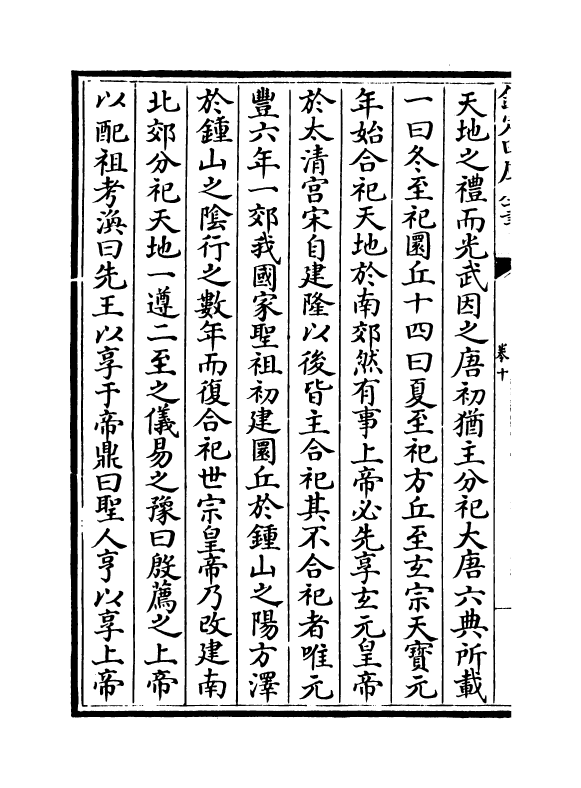 欽定四庫全書
卷十
天地之禮而光武因之唐初猶主分祀大唐六典所載
一曰冬至祀圜丘十四曰夏至祀方丘至玄宗天寶元
年始合祀天地於南郊然有事上帝必先享玄元皇帝
於太清宮宋自建隆以後皆主合祀其不合祀者唯元
豐六年一郊我國家聖祖初建圜丘於鍾山之陽方澤
於鍾山之陰行之數年而復合祀世宗皇帝乃改建南
北郊分祀天地一遵二至之儀易之豫曰殷薦之上帝
以配祖考渙曰先王以享于帝鼎曰聖人亨以享上帝